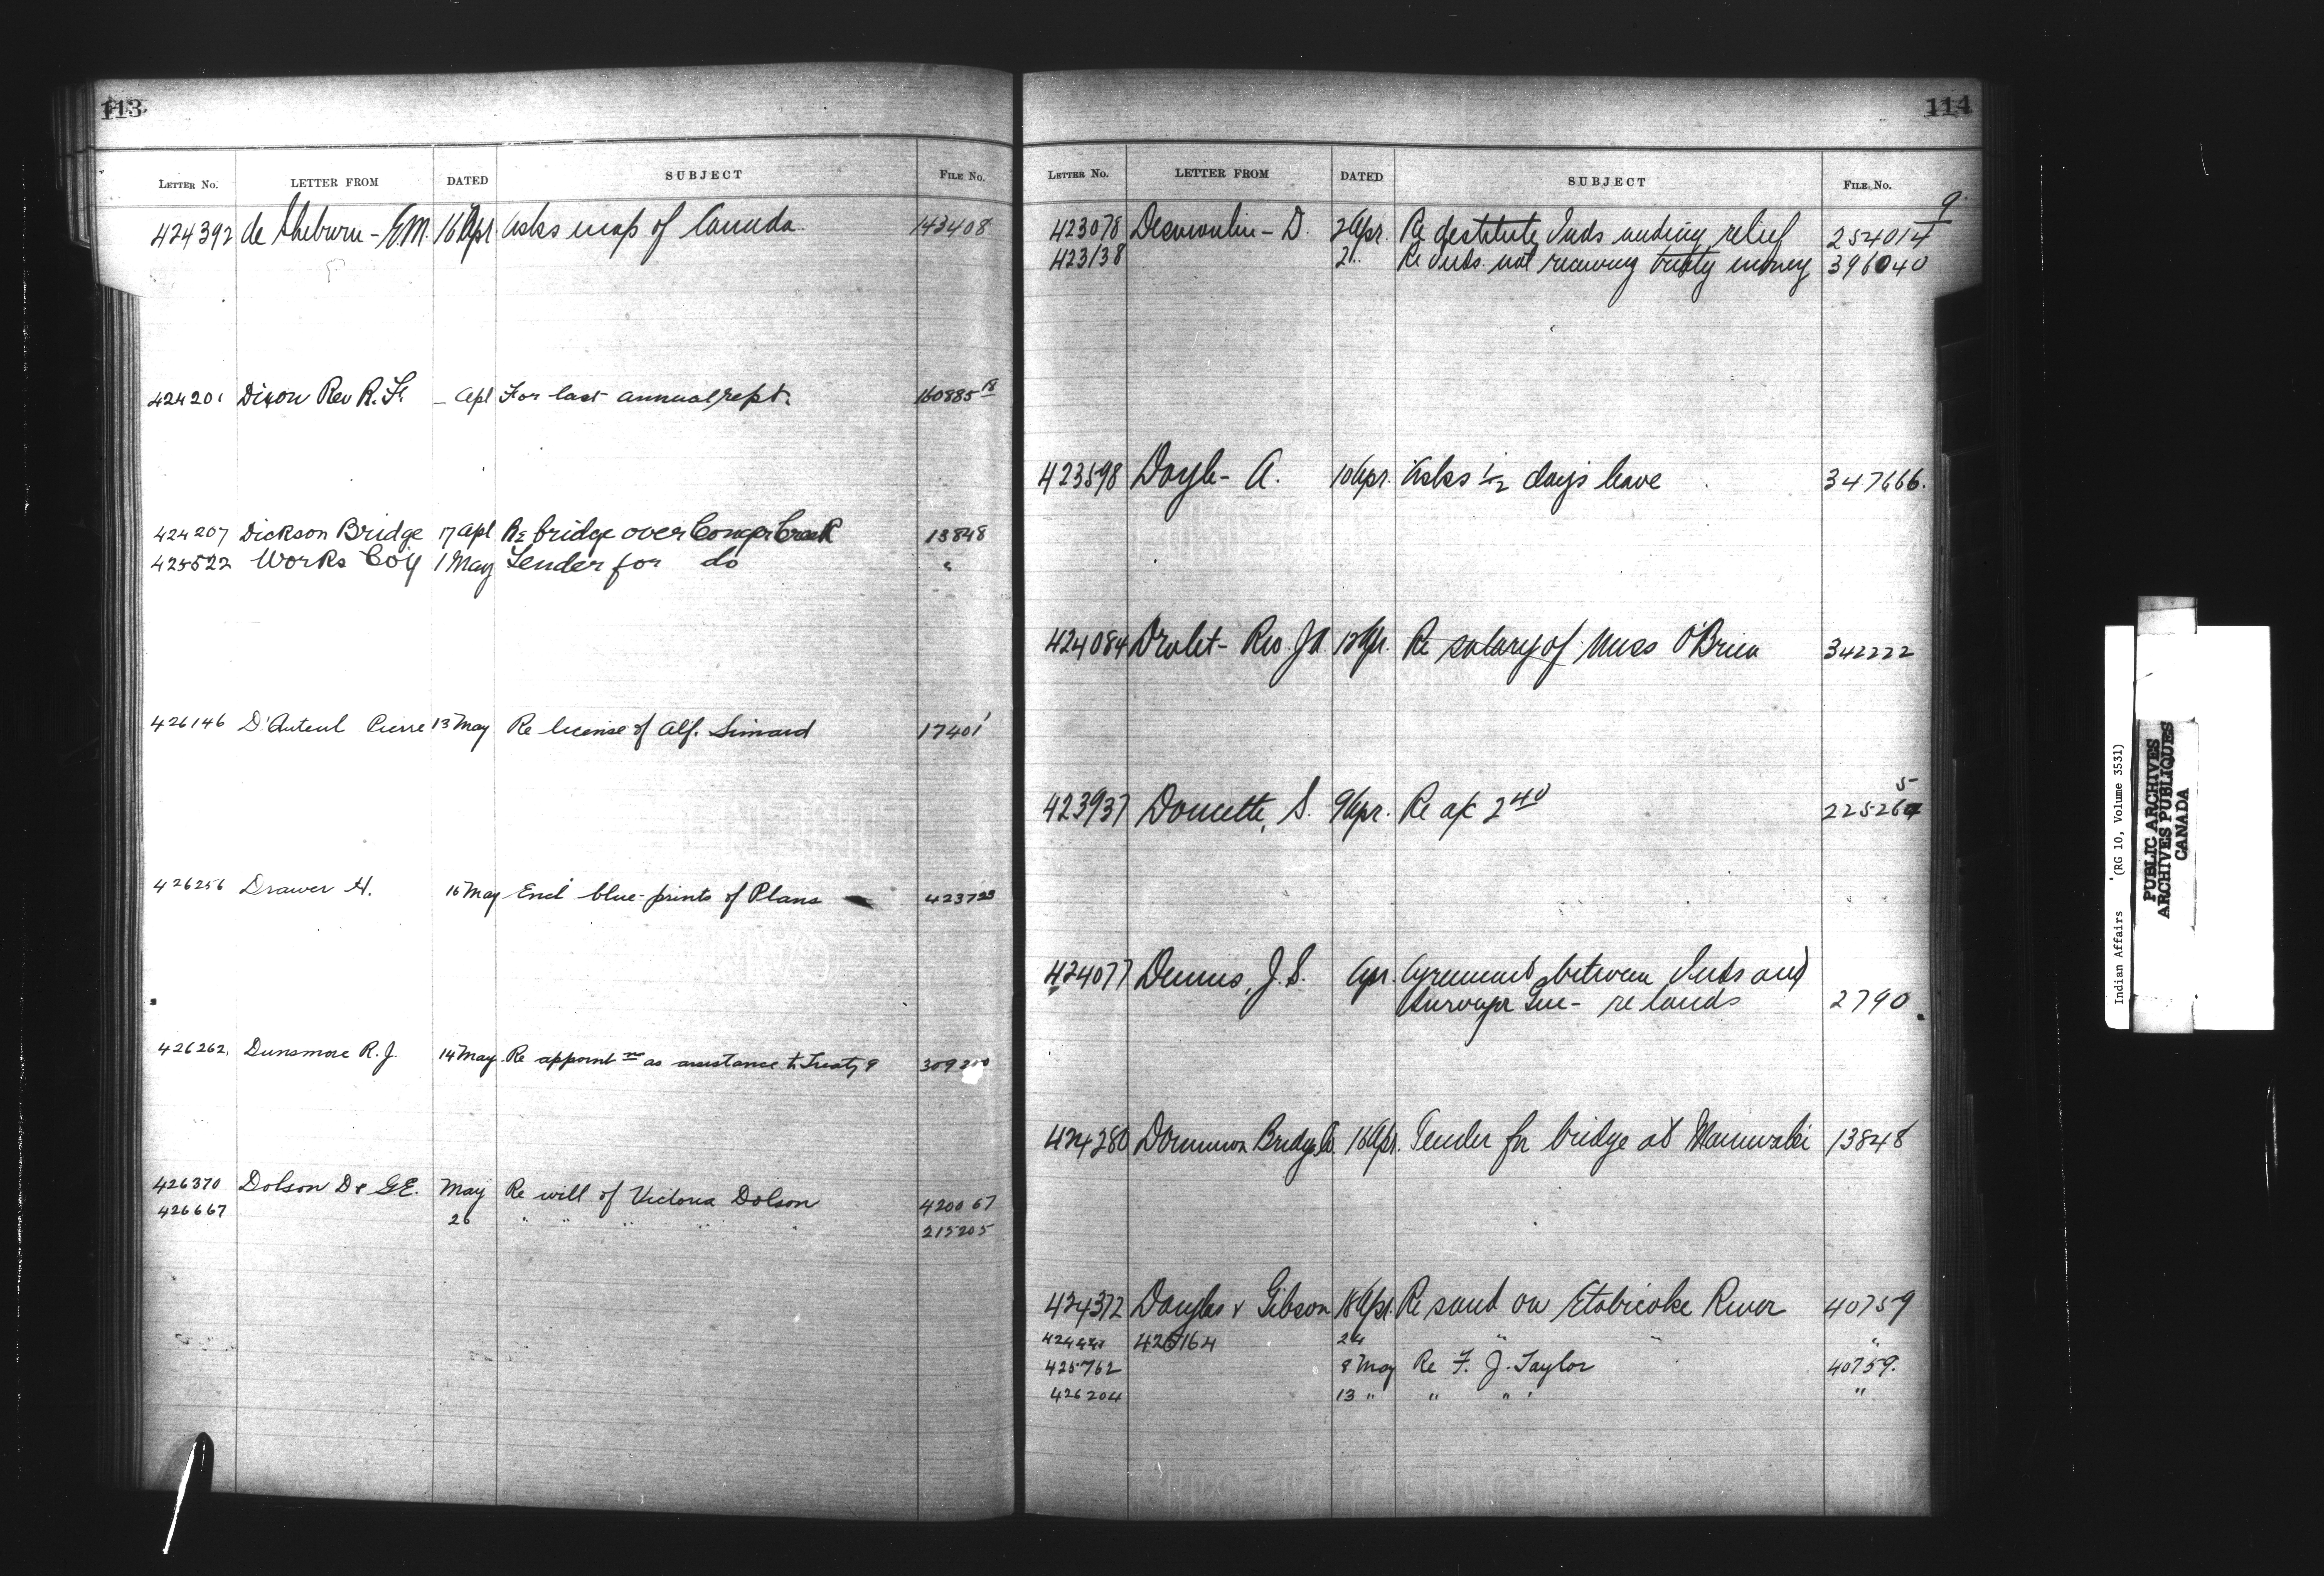 113
LETTER No. LETTER FROM DATED SUBJECT FILE No.
424392 de Sheburn - E.M. 16 Apr Asks map of Canada 143408
424201 Dixon Rev R. F. _ Apl For last annual rept. 160885 18
424207 Dickson Bridge 17 Apl Re bridge over Conger Creek 13848
425522 Works Coy 1 May Tender for do "
426146 D'Auteul Pierre 13 May Re license of Alf. Simard 17401
426256 Drawer H. 16 May Encl blue-prints of Plans 423723
426262 Dunsmore R. J. 14 May Re appoint mt as assistance to Treaty 9 309200
426370 Dolson Dr G.E. May Re will of Victoria Dolson 420067
426667 26 " " " " " 215205
114
LETTER No. LETTER FROM DATED SUBJECT FILE No.
423078 Desmoulin - D. 2 Apr. Re destitute Inds needing relief 254014 9
423138 2 " Re Inds. not receiving treaty money 396040
423598 Doyle - A. 10 Apr. Asks 1/2 days leave 347666.
424084 Drolet - Rev. J A Apr. Re salary of Miss O'Brien 342222
423937 Doucette, S. 9 Apr. Re a/c 2 40 225264 5
424077 Dennis, J. S. Apr. Agreement between Inds and
Surveyor Gen - re lands 2790
424280 Dominion Bridge Co. 16 Apr. Tender for bridge at Maniwaki 13848
424372 Douglas & Gibson 18 Apr. Re sand on Etobicoke River 40759
426164 24 " " "
425762 8 May Re F. J. Taylor 40759.
426204 13 " " " " "
Indian Affairs (RG 10, Volume 3531)
PUBLIC ARCHIVES
ARCHIVES PUBLIQUES
CANADA